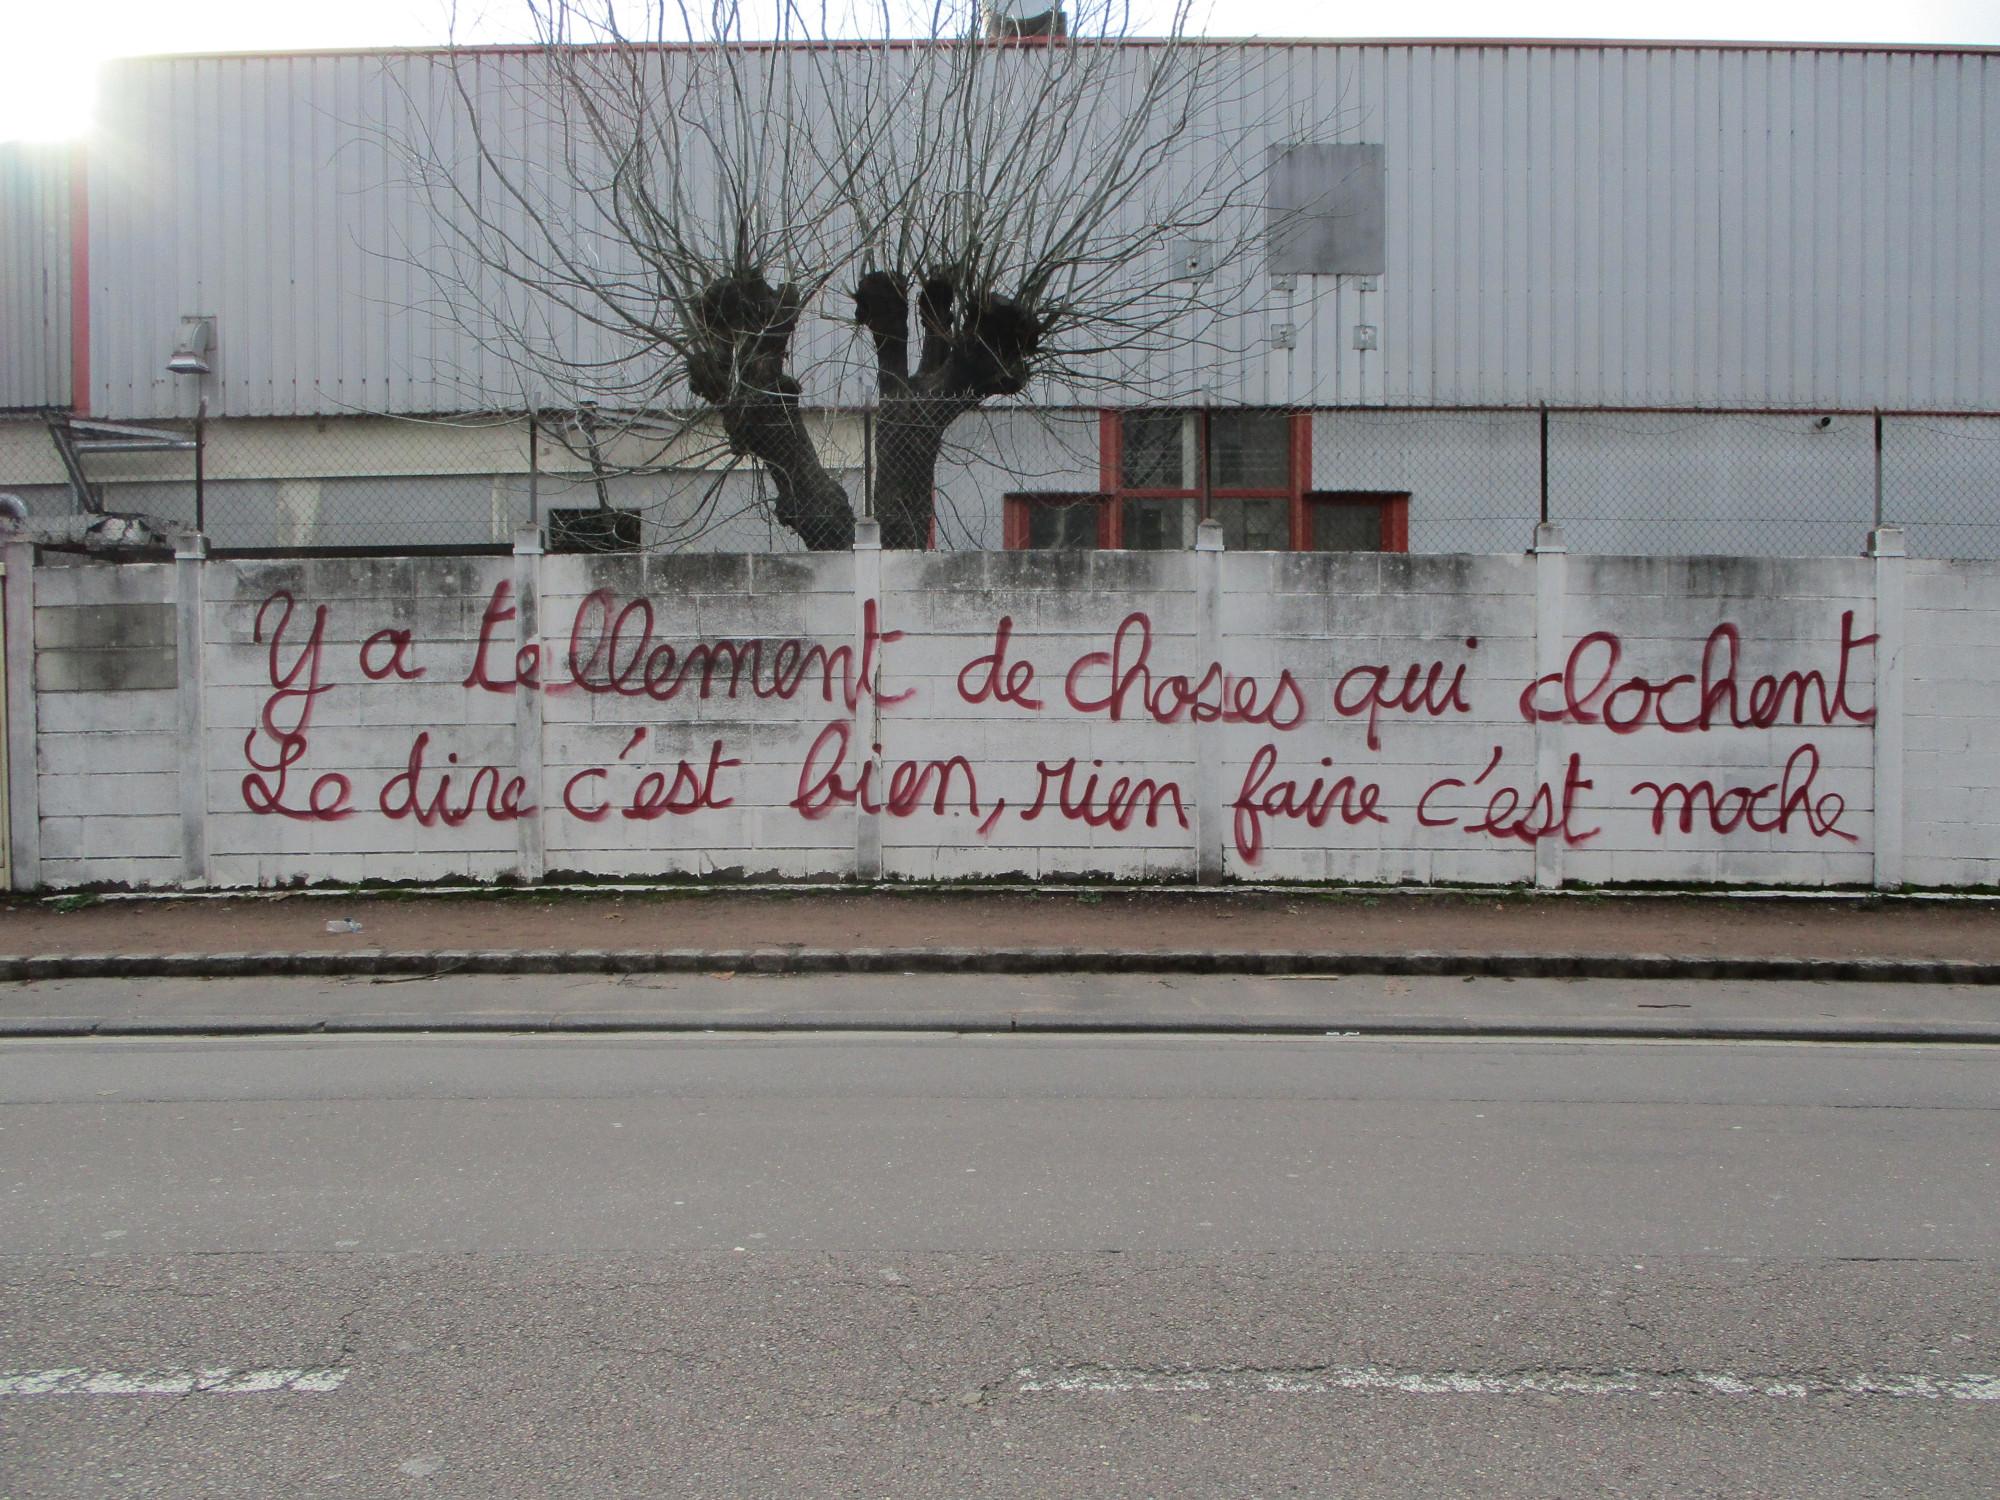 Y a tellement de choses qui clochent
Le dire c'est bien, rien faire c'est moche